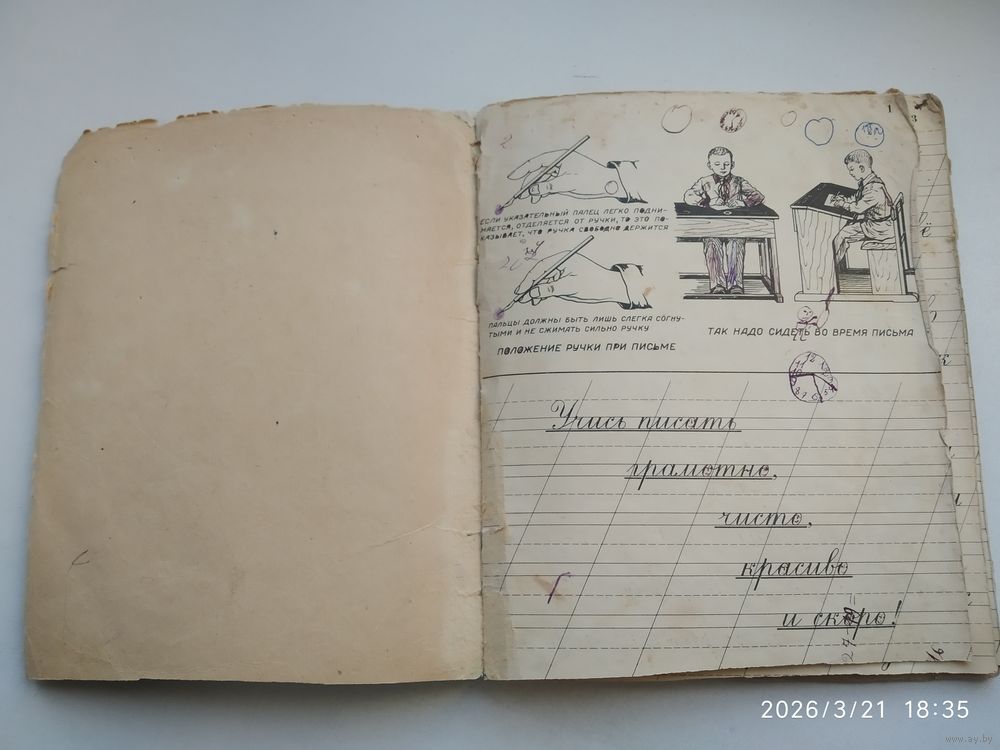 1
3
2.
ЕСЛИ УКАЗАТЕЛЬНЫЙ ПАЛЕЦ ЛЕГКО ПОДНИ-
МАЕТСЯ, ОТДЕЛЯЕТСЯ ОТ РУЧКИ, ТО ЭТО ПО-
КАЗЫВАЕТ, ЧТО РУЧКА СВОБОДНО ДЕРЖИТСЯ
ПАЛЬЦЫ ДОЛЖНЫ БЫТЬ ЛИШЬ СЛЕГКА СОГНУ-
ТЫМИ И НЕ СЖИМАТЬ СИЛЬНО РУЧКУ
ПОЛОЖЕНИЕ РУЧКИ ПРИ ПИСЬМЕ
ТАК НАДО СИДЕТЬ ВО ВРЕМЯ ПИСЬМА
Учись писать
грамотно,
чисто,
красиво
и скоро!
2026/3/21 18:35
www.ay.by